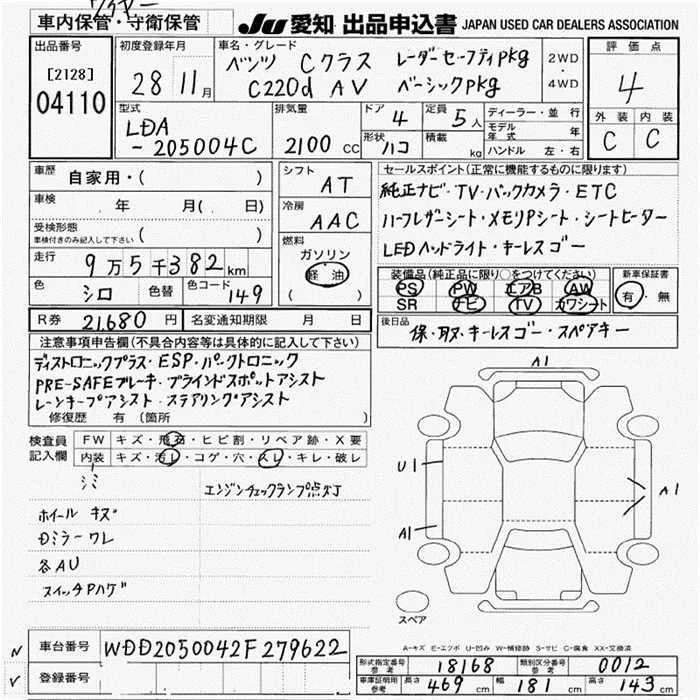 ワイヤー
車内保管・守衛保管
JU 愛知 出品申込書 JAPAN USED CAR DEALERS ASSOCIATION
出品番号
[2128]
04110
初度登録年月
28 11月
車名・グレード
ベンツ Cクラス レーダーセーフティpkg
C220d AV ベーシックpkg
2WD
・
4WD
評価点
4
外装 内装
C C
型式
LDA
-205004C
排気量
2100 CC
ドア 4
形状 ハコ
定員 5人
積載 kg
ディーラー・並行
モデル年式 年
ハンドル 左・右
車歴 自家用・( )
車検 年 月( . 日)
受検形態
車検付きのみ記入して下さい ( )
走行 9万5千382km
色 シロ 色替 色コード 149
シフト AT
冷房 AAC
燃料
ガソリン
軽油
( )
セールスポイント(正常に機能するものに限ります)
純正ナビ・TV・バックカメラ・ETC
ハーフレザーシート・メモリPシート・シートヒーター
LEDヘッドライト・キーレスゴー
装備品(純正品に限り○をつけてください)
PS PW エアB AW
SR ナビ TV カワシート
新車保証書
有・無
R券 21,680円 名変通知期限 月 日
後日品
保・取・キーレスゴー・スペアキー
注意事項申告欄(不具合内容等は具体的に記入して下さい)
ディストロニックプラス・ESP・パークトロニック
PRE-SAFEブレーキ・ブラインドスポットアシスト
レーンキープアシスト・ステアリングアシスト
修復歴 有(箇所 )
検査員記入欄
FW キズ・飛石・ヒビ割・リペア跡・X要
内装 キズ・汚レ・コゲ・穴・スレ・キレ・破レ
シミ
エンジンチェックランプ点灯
ホイール キズ
Dミラー ワレ
各AU
スイッチPハゲ
A1
U1
A1
A1
スペア
A-キズ E-エクボ U-凹み W-補修跡 S-サビ C-腐食 XX-交換済
車台番号 WDD2050042F279622
登録番号
型式指定番号 参考 18168 類別区分番号 参考 0012
車庫証明用 参考 長さ 469 cm 幅 181 cm 高さ 143 cm